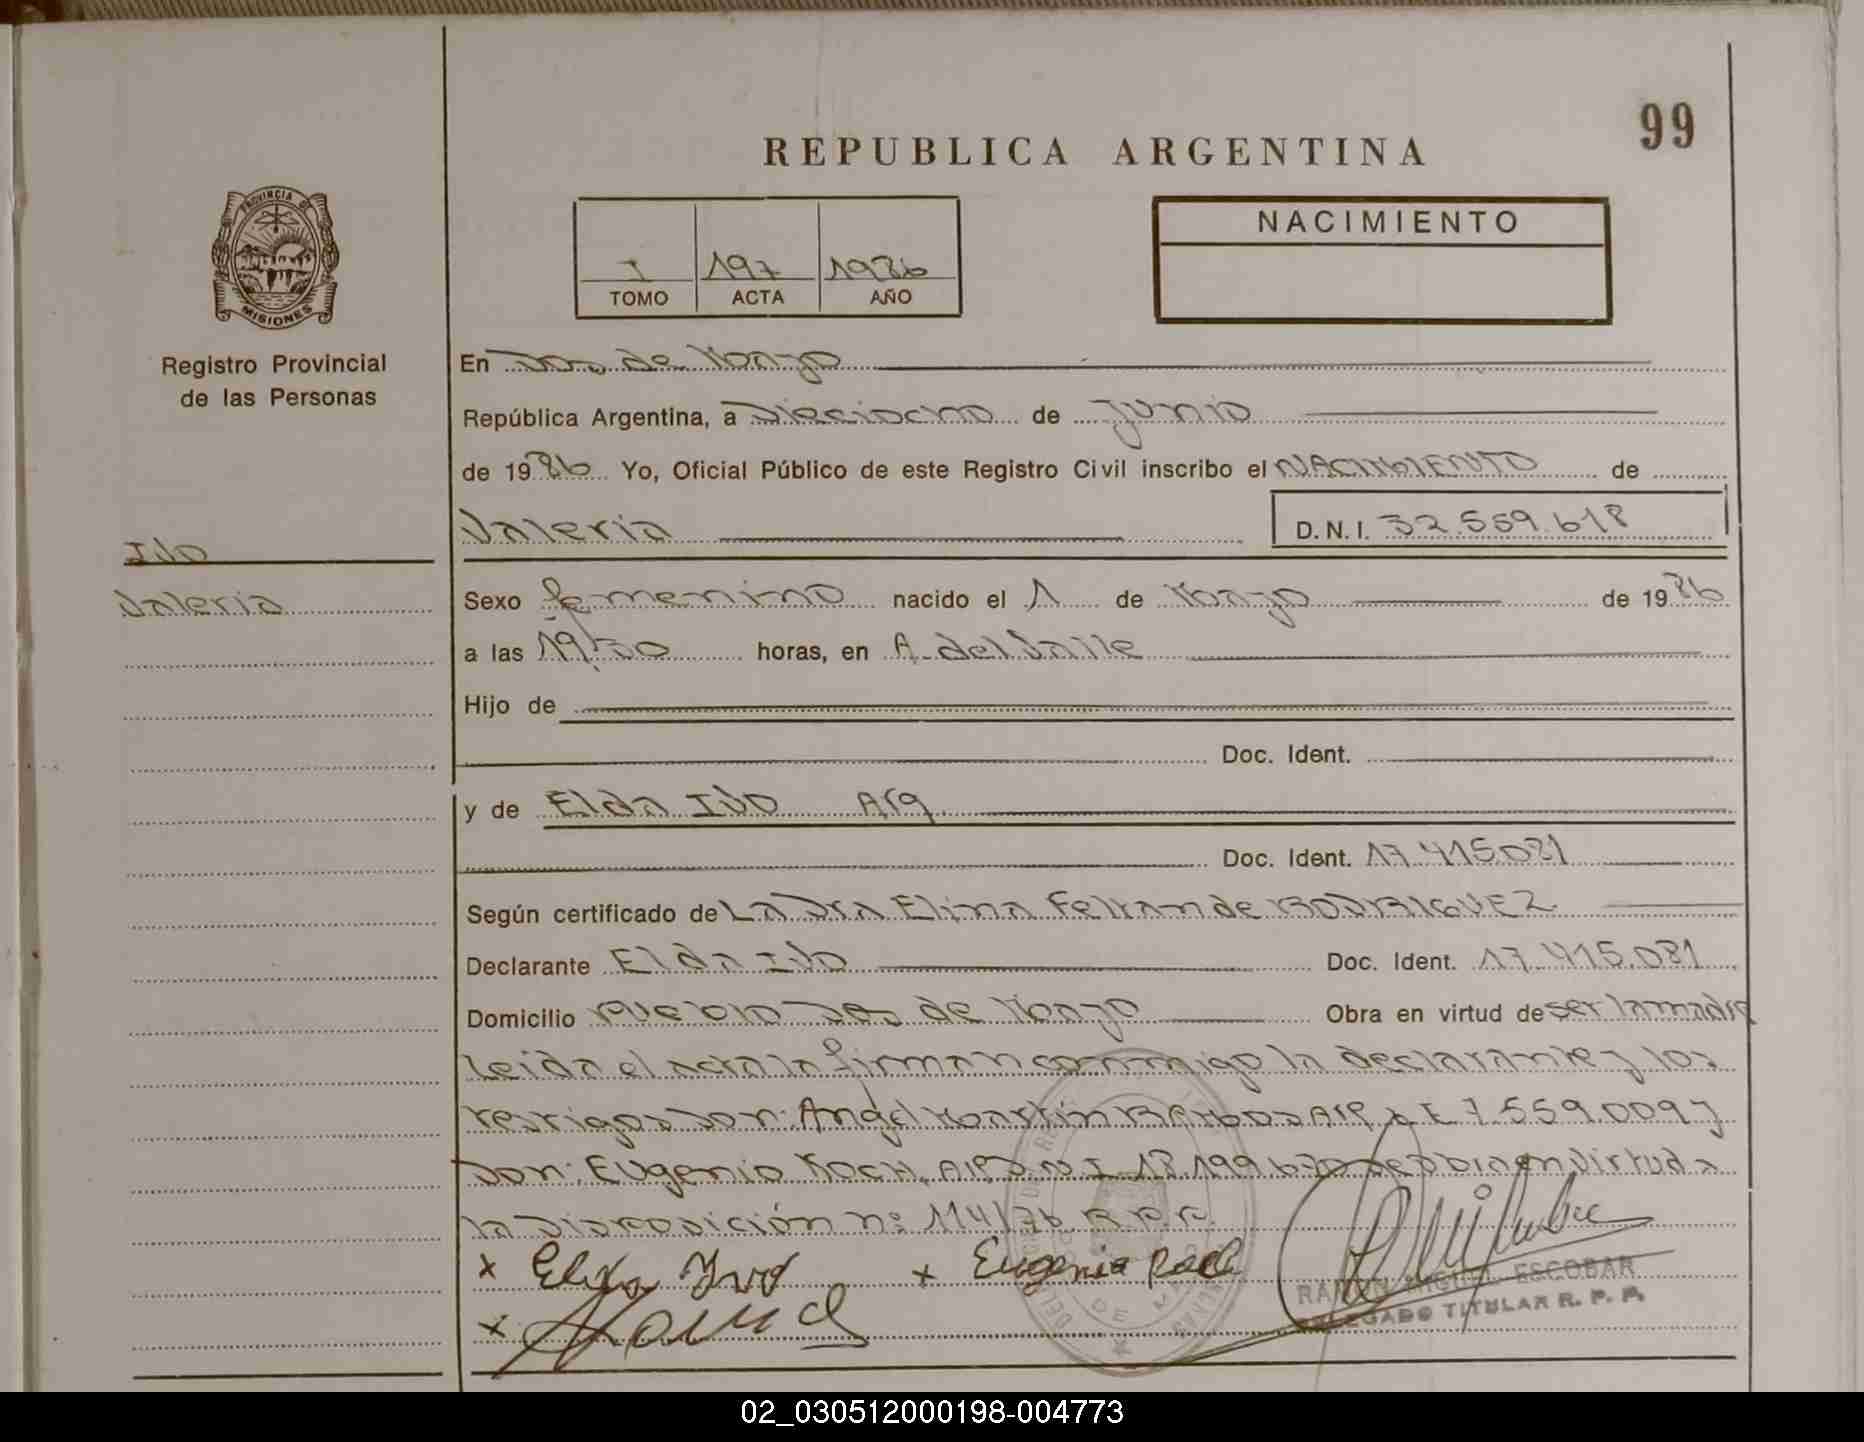 99
REPUBLICA ARGENTINA
PROVINCIA DE
MISIONES
Registro Provincial
de las Personas
I 197 1986
TOMO ACTA AÑO
NACIMIENTO
En Dos de Marzo
República Argentina, a Dieciocho de Junio
de 1986 Yo, Oficial Público de este Registro Civil inscribo el NACIMIENTO de
Valeria D.N.I. 32.559.618
Ivo
Valeria
Sexo femenino nacido el 1 de Marzo de 1986
a las 19,30 horas, en A. del Valle
Hijo de
Doc. Ident.
y de Elda Ivo Arg.
Doc. Ident. 17.415.081
Según certificado de La Dra Elina Feltan de RODRIGUEZ
Declarante Elda Ivo Doc. Ident. 17.415.081
Domicilio Pueblo Dos de Marzo Obra en virtud de ser la madre
Leida el acta la firman conmigo la declarante y los
testigos Don: Angel Martín Arg. L E 7.559.009 y
Don: Eugenio KOCH, Arg D.N.I 18.199.670 Se obra en virtud a
la Disposición nº 114/76 R.P.P.
x Elda Ivo x Eugenio Koch
x
RAMON MIGUEL ESCOBAR
DELEGADO TITULAR R. P. P.
02_030512000198-004773